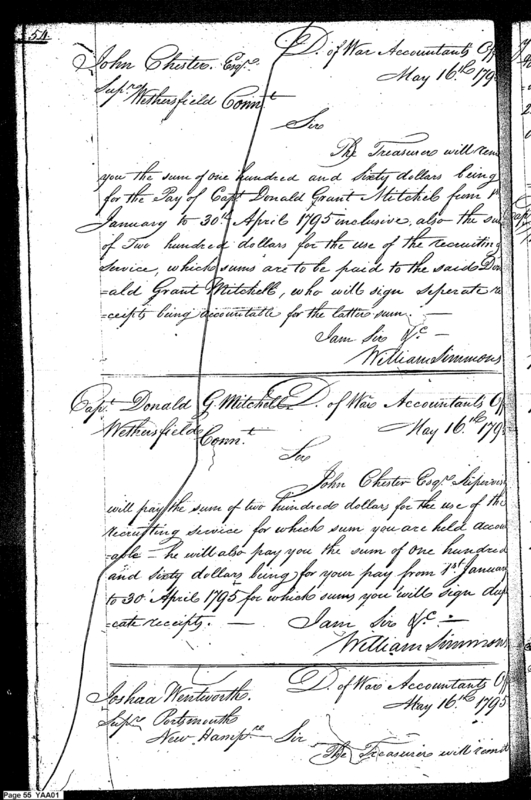 54
John Chester Esqr. D. of War Accountants Off
Supr. May 16th 179
Wethersfield Connt.
Sir
The Treasurer will remi
you the sum of one hundred and sixty dollars being
for the Pay of Capt Donald Grant Mitchel from 1st
January to 30th April 1795 inclusive, also the su
of Two hundred dollars for the use of the recruiting
service, which sums are to be paid to the said Don
=ald Grant Mitchell, who will sign seperate re
=ceipts being accountable for the latter sum. —
I am Sir &c —
William Simmons
Capt. Donald G. Mitchell D. of War Accountants Off
Wethersfield May 16th 179
Connt.
Sir
John Chester Esqr. Supervis
will pay the sum of two hundred dollars for the use of the
recruiting service for which sum you are held accou
=able — he will also pay you the sum of one hundred
and sixty dollars being for your pay from 1st January
to 30 April 1795 for which sums you will sign dup
=cate receipts. — I am Sir &c —
William Simmons
Joshua Wentworth D. of War Accountants Off
Supr. Portsmouth May 16th 1795
New Hampre. Sir
The Treasurer will remit
Page 55 YAA01